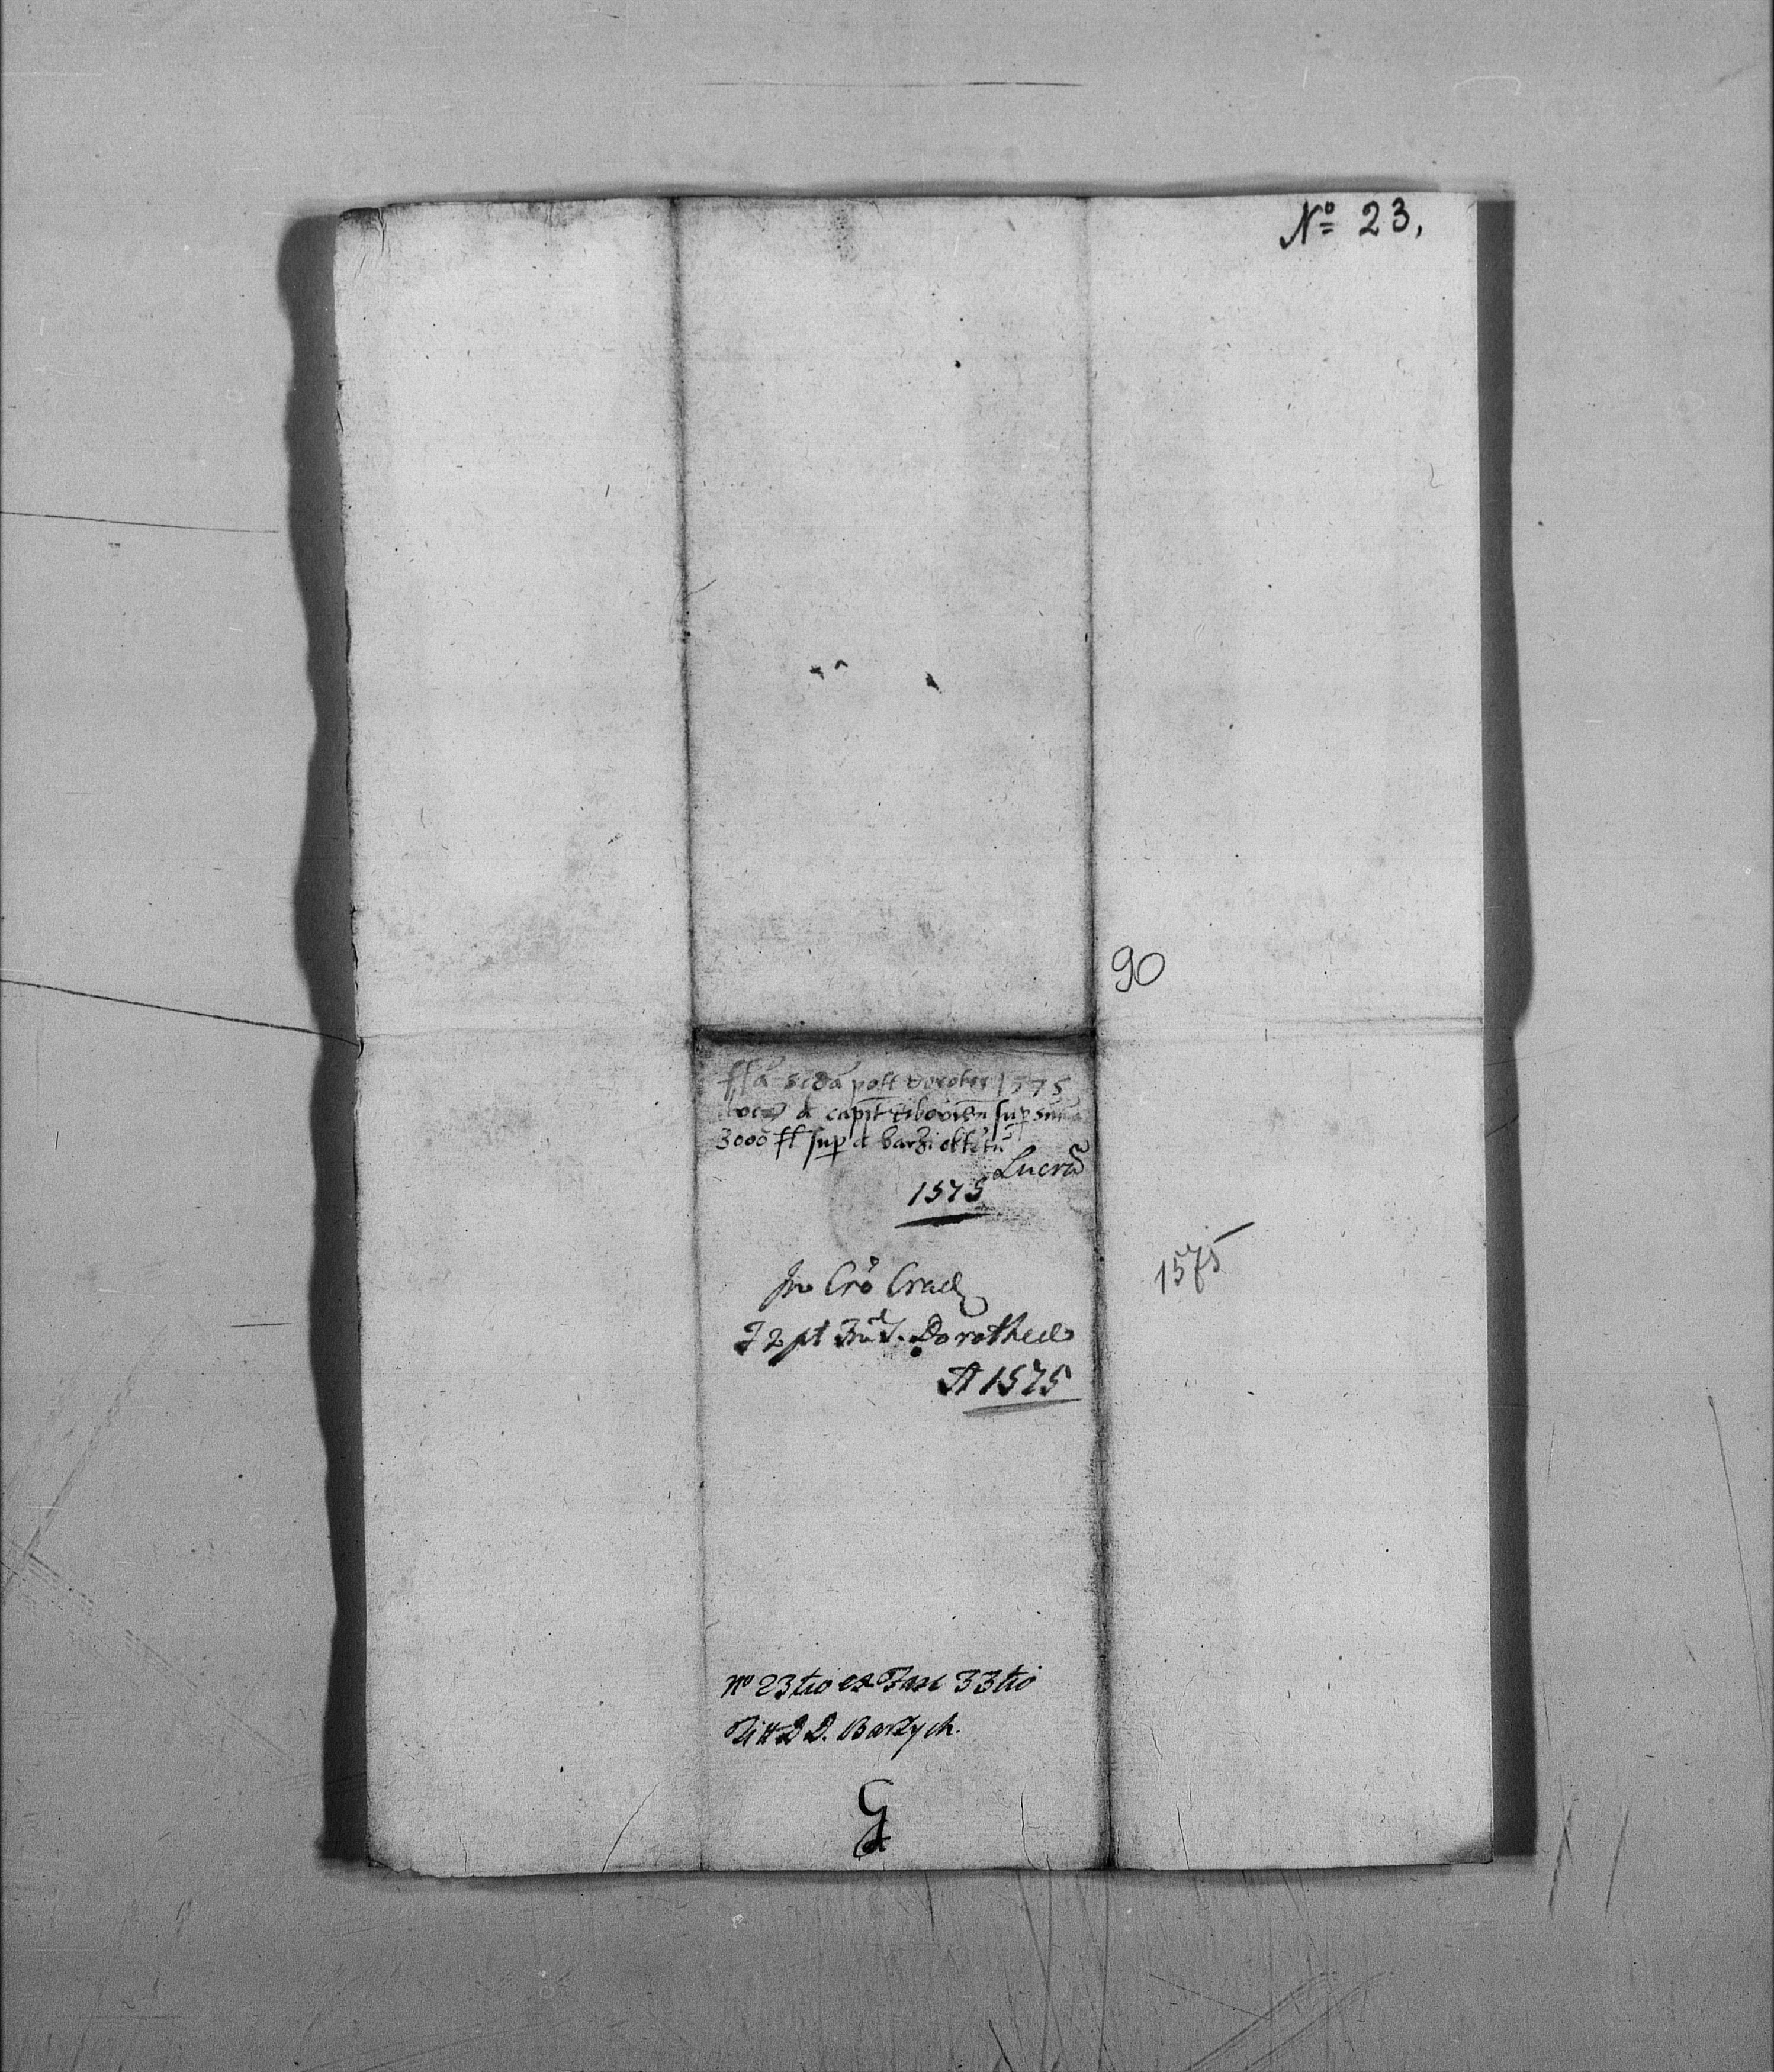 No 23,
90
fſa scda post dorothee 1575
a capit sup sum
3000 fl sup a barzi
Lucrũ
1575
1575
In Crõ Crac
F 2 pt Fm S. Dorotheæ
A 1575
No 23tio ex Fasc 33tio
Titt D D. Barzych.
G